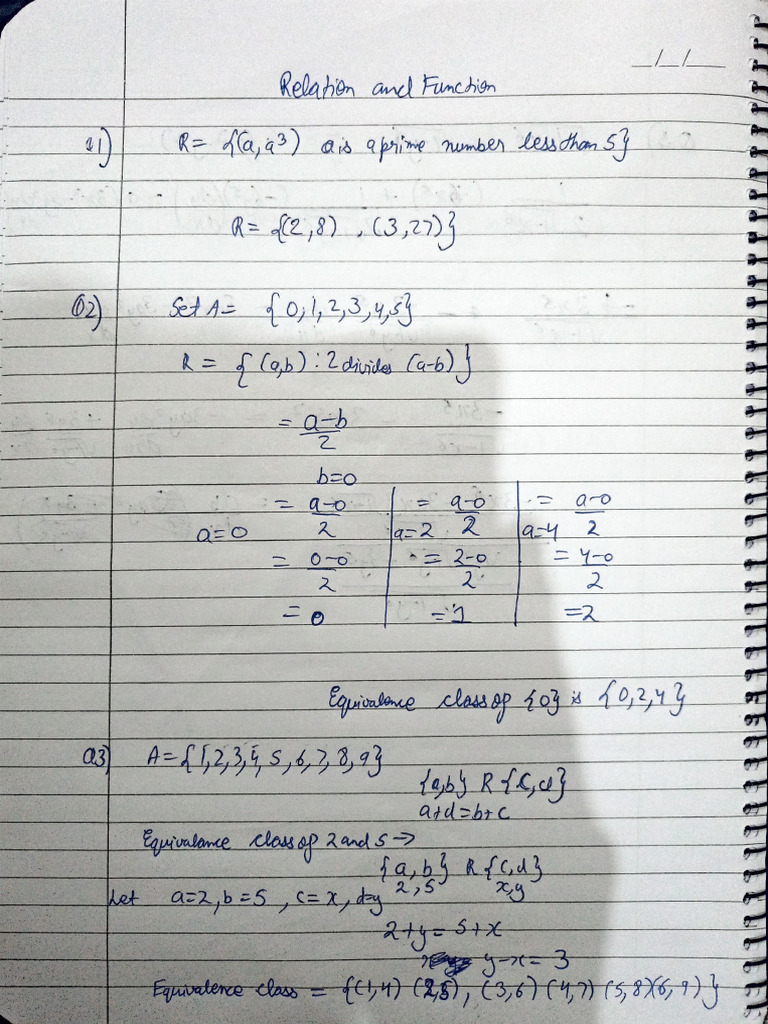 _/_/_
Relation and Function
Q1) R = {(a, a³) a is a prime number less than 5}
R = {(2,8) , (3,27)}
Q2) Set A = {0,1,2,3,4,5}
R = {(a,b) : 2 divides (a-b)}
= a-b/2
b=0
= a-0/2 = a-0/2 = a-0/2
a=0 a=2 a=4
= 0-0/2 = 2-0/2 = 4-0/2
= 0 = 1 =2
Equivalence class of {0} is {0,2,4}
Q3) A = {1,2,3,4,5,6,7,8,9}
{a,b} R {c,d}
a+d=b+c
Equivalance class of 2 and 5 →
{a,b} R {c,d}
2,5 x,y
Let a=2, b=5, c=x, d=y
2+y = 5+x
y-x = 3
Equivalence class = {(1,4) (2,5), (3,6) (4,7) (5,8)(6,9)}